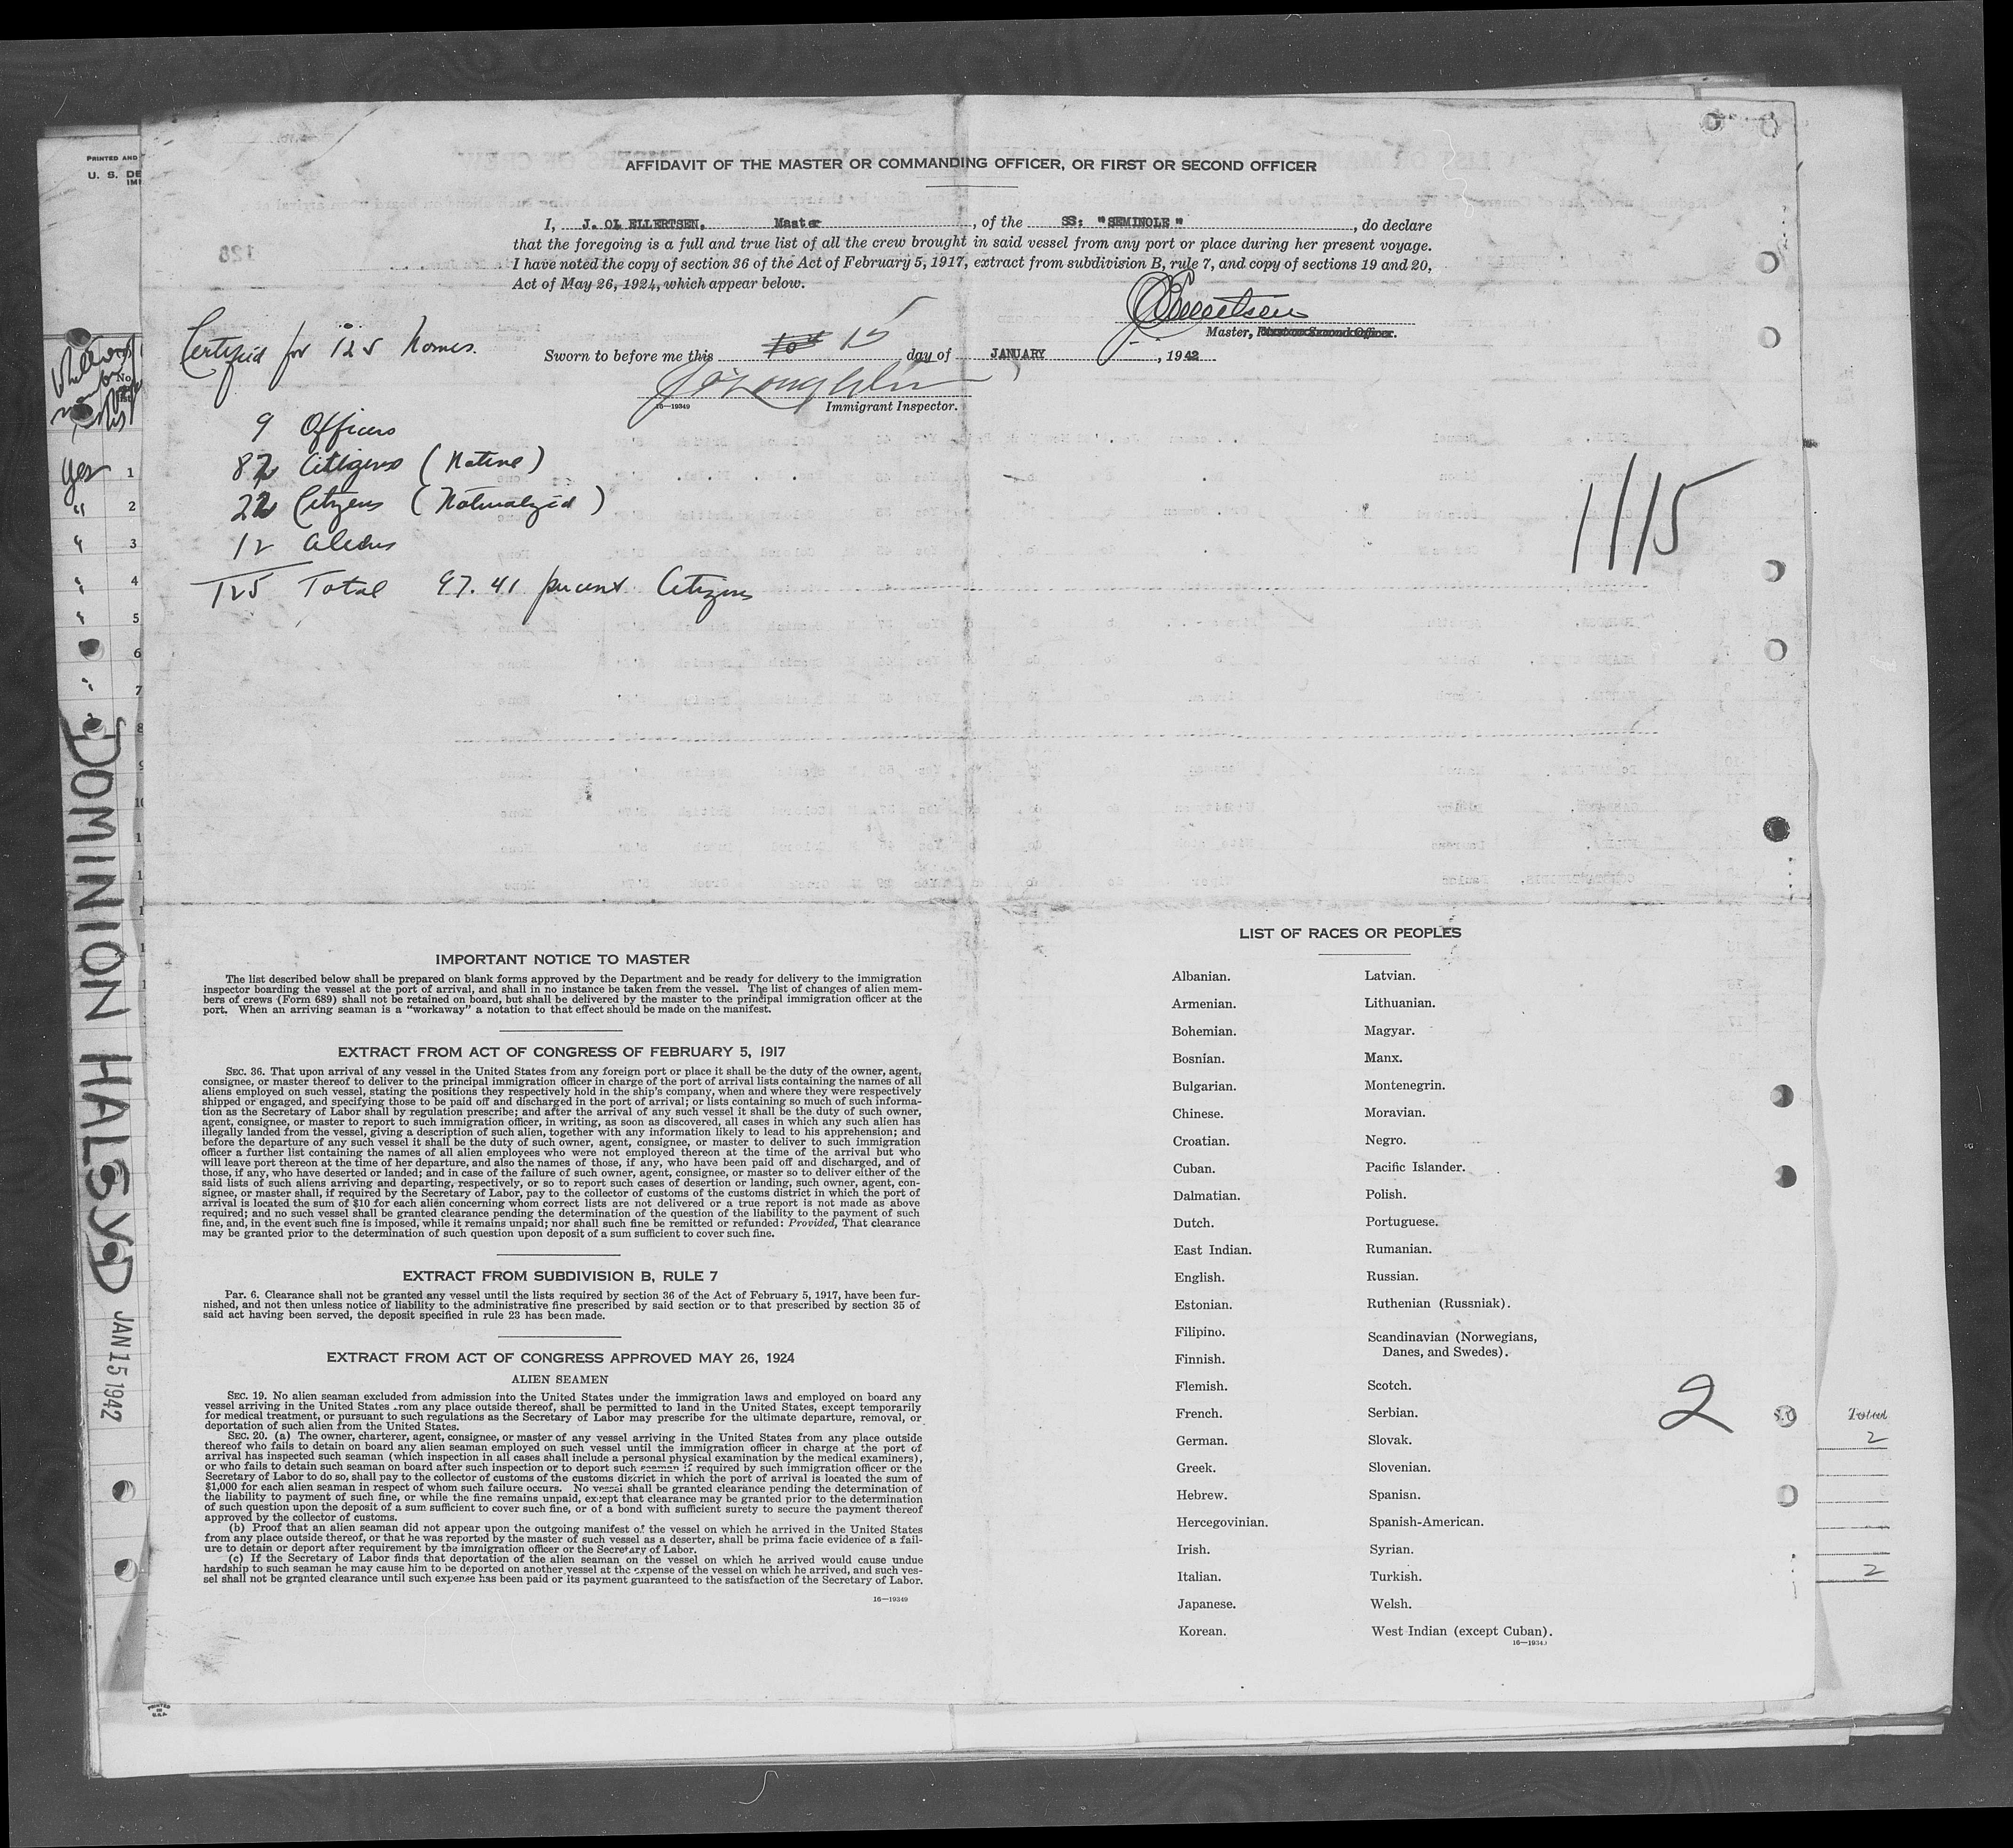 PRINTED AND
U. S. DE
IMI
AFFIDAVIT OF THE MASTER OR COMMANDING OFFICER, OR FIRST OR SECOND OFFICER
I, J. OL ELLERTSEN, Master, of the SS: "SEMINOLE", do declare
that the foregoing is a full and true list of all the crew brought in said vessel from any port or place during her present voyage.
I have noted the copy of section 36 of the Act of February 5, 1917, extract from subdivision B, rule 7, and copy of sections 19 and 20,
Act of May 26, 1924, which appear below.
Master,
Certified for 125 Names.
Sworn to before me this 15 day of JANUARY, 1942
16—19349 Immigrant Inspector.
9 Officers
82 Citizens (Native)
22 Citizens (Naturalized)
12 Aliens
125 Total 97.41 percent Citizens
1/15
No.
yes 1
" 2
" 3
" 4
" 5
6
" 7
8
DOMINION HALSYD
JAN 15 1942
IMPORTANT NOTICE TO MASTER
The list described below shall be prepared on blank forms approved by the Department and be ready for delivery to the immigration
inspector boarding the vessel at the port of arrival, and shall in no instance be taken from the vessel. The list of changes of alien mem-
bers of crews (Form 689) shall not be retained on board, but shall be delivered by the master to the principal immigration officer at the
port. When an arriving seaman is a "workaway" a notation to that effect should be made on the manifest.
EXTRACT FROM ACT OF CONGRESS OF FEBRUARY 5, 1917
SEC. 36. That upon arrival of any vessel in the United States from any foreign port or place it shall be the duty of the owner, agent,
consignee, or master thereof to deliver to the principal immigration officer in charge of the port of arrival lists containing the names of all
aliens employed on such vessel, stating the positions they respectively hold in the ship's company, when and where they were respectively
shipped or engaged, and specifying those to be paid off and discharged in the port of arrival; or lists containing so much of such informa-
tion as the Secretary of Labor shall by regulation prescribe; and after the arrival of any such vessel it shall be the duty of such owner,
agent, consignee, or master to report to such immigration officer, in writing, as soon as discovered, all cases in which any such alien has
illegally landed from the vessel, giving a description of such alien, together with any information likely to lead to his apprehension; and
before the departure of any such vessel it shall be the duty of such owner, agent, consignee, or master to deliver to such immigration
officer a further list containing the names of all alien employees who were not employed thereon at the time of the arrival but who
will leave port thereon at the time of her departure, and also the names of those, if any, who have been paid off and discharged, and of
those, if any, who have deserted or landed; and in case of the failure of such owner, agent, consignee, or master so to deliver either of the
said lists of such aliens arriving and departing, respectively, or so to report such cases of desertion or landing, such owner, agent, con-
signee, or master shall, if required by the Secretary of Labor, pay to the collector of customs of the customs district in which the port of
arrival is located the sum of $10 for each alien concerning whom correct lists are not delivered or a true report is not made as above
required; and no such vessel shall be granted clearance pending the determination of the question of the liability to the payment of such
fine, and, in the event such fine is imposed, while it remains unpaid; nor shall such fine be remitted or refunded: Provided, That clearance
may be granted prior to the determination of such question upon deposit of a sum sufficient to cover such fine.
EXTRACT FROM SUBDIVISION B, RULE 7
Par. 6. Clearance shall not be granted any vessel until the lists required by section 36 of the Act of February 5, 1917, have been fur-
nished, and not then unless notice of liability to the administrative fine prescribed by said section or to that prescribed by section 35 of
said act having been served, the deposit specified in rule 23 has been made.
EXTRACT FROM ACT OF CONGRESS APPROVED MAY 26, 1924
ALIEN SEAMEN
SEC. 19. No alien seaman excluded from admission into the United States under the immigration laws and employed on board any
vessel arriving in the United States from any place outside thereof, shall be permitted to land in the United States, except temporarily
for medical treatment, or pursuant to such regulations as the Secretary of Labor may prescribe for the ultimate departure, removal, or
deportation of such alien from the United States.
SEC. 20. (a) The owner, charterer, agent, consignee, or master of any vessel arriving in the United States from any place outside
thereof who fails to detain on board any alien seaman employed on such vessel until the immigration officer in charge at the port of
arrival has inspected such seaman (which inspection in all cases shall include a personal physical examination by the medical examiners),
or who fails to detain such seaman on board after such inspection or to deport such seaman if required by such immigration officer or the
Secretary of Labor to do so, shall pay to the collector of customs of the customs district in which the port of arrival is located the sum of
$1,000 for each alien seaman in respect of whom such failure occurs. No vessel shall be granted clearance pending the determination of
the liability to payment of such fine, or while the fine remains unpaid, except that clearance may be granted prior to the determination
of such question upon the deposit of a sum sufficient to cover such fine, or of a bond with sufficient surety to secure the payment thereof
approved by the collector of customs.
(b) Proof that an alien seaman did not appear upon the outgoing manifest of the vessel on which he arrived in the United States
from any place outside thereof, or that he was reported by the master of such vessel as a deserter, shall be prima facie evidence of a fail-
ure to detain or deport after requirement by the immigration officer or the Secretary of Labor.
(c) If the Secretary of Labor finds that deportation of the alien seaman on the vessel on which he arrived would cause undue
hardship to such seaman he may cause him to be deported on another vessel at the expense of the vessel on which he arrived, and such ves-
sel shall not be granted clearance until such expense has been paid or its payment guaranteed to the satisfaction of the Secretary of Labor.
16—19349
LIST OF RACES OR PEOPLES
Albanian.
Armenian.
Bohemian.
Bosnian.
Bulgarian.
Chinese.
Croatian.
Cuban.
Dalmatian.
Dutch.
East Indian.
English.
Estonian.
Filipino.
Finnish.
Flemish.
French.
German.
Greek.
Hebrew.
Hercegovinian.
Irish.
Italian.
Japanese.
Korean.
Latvian.
Lithuanian.
Magyar.
Manx.
Montenegrin.
Moravian.
Negro.
Pacific Islander.
Polish.
Portuguese.
Rumanian.
Russian.
Ruthenian (Russniak).
Scandinavian (Norwegians,
Danes, and Swedes).
Scotch.
Serbian.
Slovak.
Slovenian.
Spanish.
Spanish-American.
Syrian.
Turkish.
Welsh.
West Indian (except Cuban).
2
Total
2
2
PRINTED
IN
U.S.A.